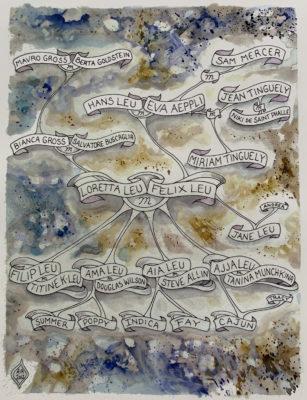 MAURO GROSS
BERTA GOLDSTEIN
SAM MERCER
m
HANS LEU
EVA AEPPLI
JEAN TINGUELY
NIKI DE SAINT PHALLE
BIANCA GROSS
SALVATORE BUSCAGLIA
MIRIAM TINGUELY
LORETTA LEU
FELIX LEU
m
ANDREA
JANE LEU
FILIP LEU
TITINE K-LEU
AMA LEU
DOUGLAS WILSON
AIA LEU
STEVE ALLIN
AJJA LEU
TANINA MUNCHKINA
TRACY
SUMMER
POPPY
INDICA
FAY
CAJUN